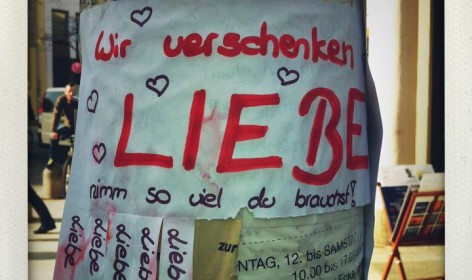 Wir verschenken
LIEBE
nimm so viel du brauchst!
Liebe
Liebe
Liebe
Liebe
Liebe
zur
NTAG, 12. bis SAMST
10.00 bis 17